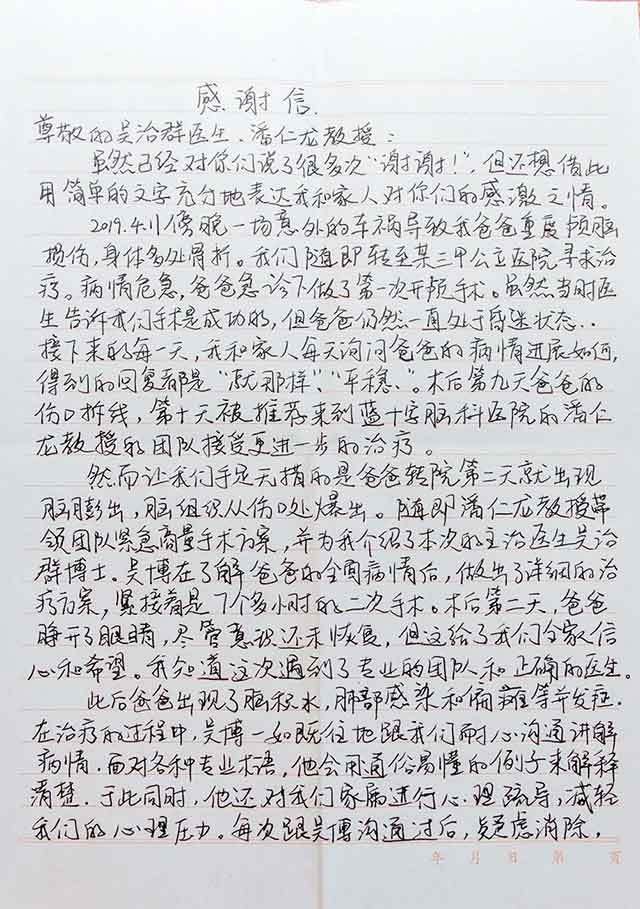 感谢信.
尊敬的吴治群医生、潘仁龙教授：
虽然已经对你们说了很多次“谢谢！”，但还想借此
用简单的文字充分地表达我和家人对你们的感激之情。
2019.4.11傍晚一场意外的车祸导致我爸爸重度颅脑
损伤，身体多处骨折。我们随即转至某三甲公立医院寻求治
疗。病情危急，爸爸急诊下做了第一次开颅手术。虽然当时医
生告诉我们手术是成功的，但爸爸仍然一直处于昏迷状态..
接下来的每一天，我和家人每天询问爸爸的病情进展如何，
得到的回复都是“就那样”、“平稳.”。术后第九天爸爸的
伤口拆线，第十天被推荐来到蓝十字脑科医院的潘仁
龙教授的团队接受更进一步的治疗。
然而让我们手足无措的是爸爸转院第二天就出现
脑膨出，脑组织从伤口处爆出。随即潘仁龙教授带
领团队紧急商量手术方案，并为我介绍了本次的主治医生吴治
群博士。吴博在了解爸爸的全面病情后，做出了详细的治
疗方案，紧接着是7个多小时的二次手术。术后第二天，爸爸
睁开了眼睛，尽管意识还未恢复，但这给了我们全家信
心和希望。我知道这次遇到了专业的团队和正确的医生。
此后爸爸出现了脑积水，肺部感染和偏瘫等并发症.
在治疗的过程中，吴博一如既往地跟我们耐心沟通讲解
病情.面对各种专业术语，他会用通俗易懂的例子来解释
清楚.于此同时，他还对我们家属进行心理疏导，减轻
我们的心理压力。每次跟吴博沟通过后，疑虑消除，
年 月 日 第 页